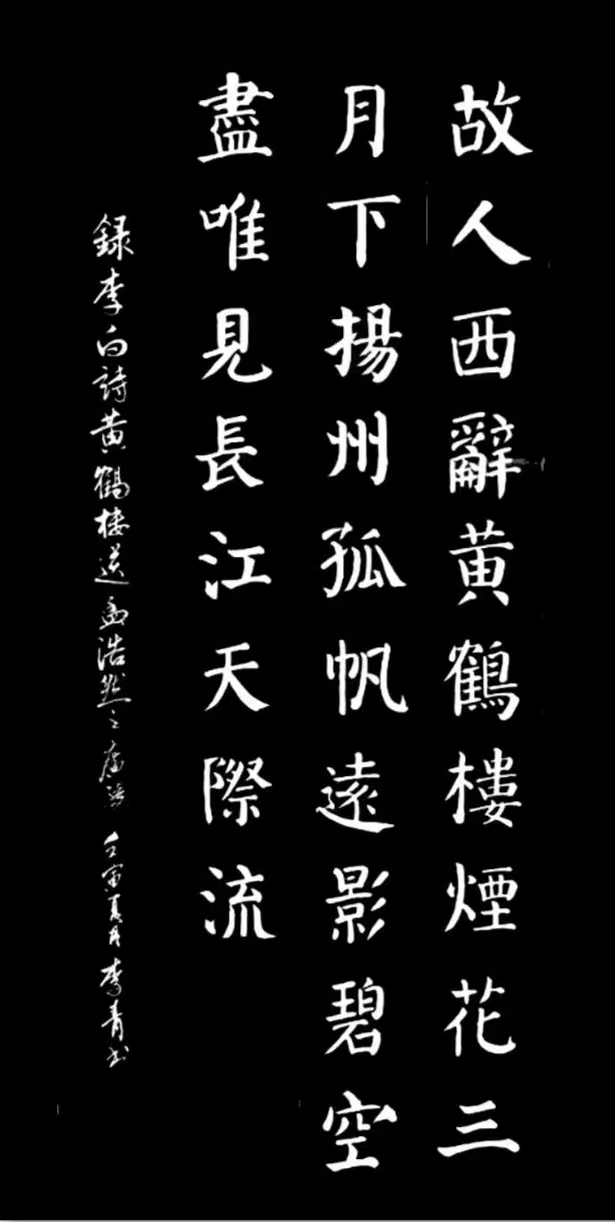 故人西辭黃鶴樓煙花三
月下揚州孤帆遠影碧空
盡唯見長江天際流
録李白詩黃鶴樓送孟浩然之廣陵 壬寅夏月李青书